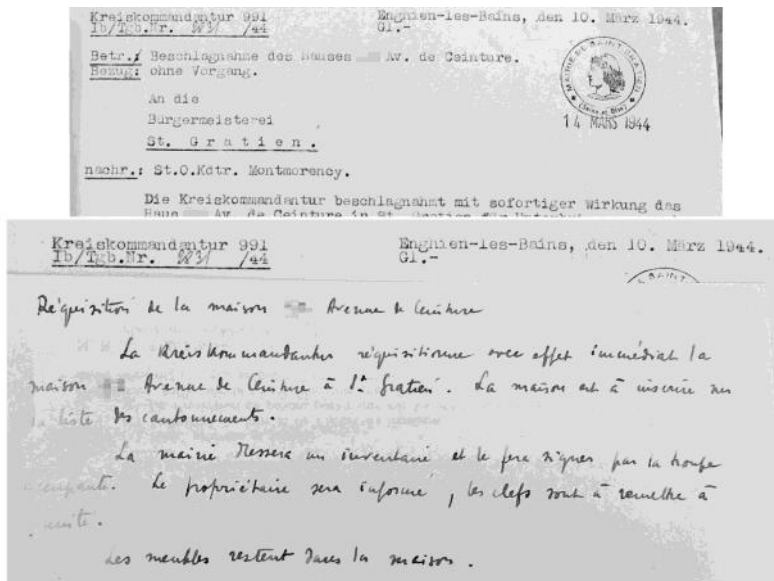 Kreiskommandantur 991 Enghien-les-Bains, den 10. März 1944.
Ib/Tgb.Nr. 2831 /44 Gl.-
Betr.: Beschlagnahme des Hauses Av. de Ceinture.
Bezug: ohne Vorgang.
MAIRIE DE SAINT GRATIEN
(Seine et Oise)
14 MARS 1944
An die
Bürgermeisterei
St. Gratien.
nachr.: St.O.Kdtr. Montmorency.
Die Kreiskommandantur beschlagnahmt mit sofortiger Wirkung das
Haus Av. de Ceinture in St. Gratien für
Kreiskommandantur 991 Enghien-les-Bains, den 10. März 1944.
Ib/Tgb.Nr. 2831 /44 Gl.-
Réquisition de la maison Avenue de Ceinture
La Kreiskommandantur réquisitionne avec effet immédiat la
maison Avenue de Ceinture à St Gratien. La maison est à inscrire sur
la liste des cantonnements.
La mairie dressera un inventaire et le fera signer par la troupe
occupante. Le propriétaire sera informé, les clefs sont à remettre à
Les meubles restent dans la maison.